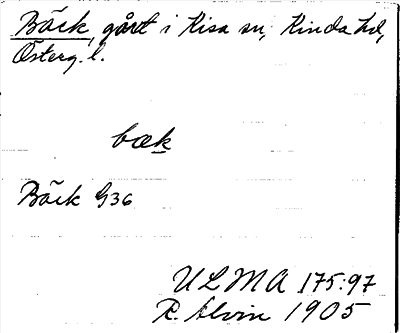 Bäck, gård i Kisa sn, Kinda hd,
Österg. l.
bæk
Bäck G36
ULMA 175:97
R. Alvin 1905